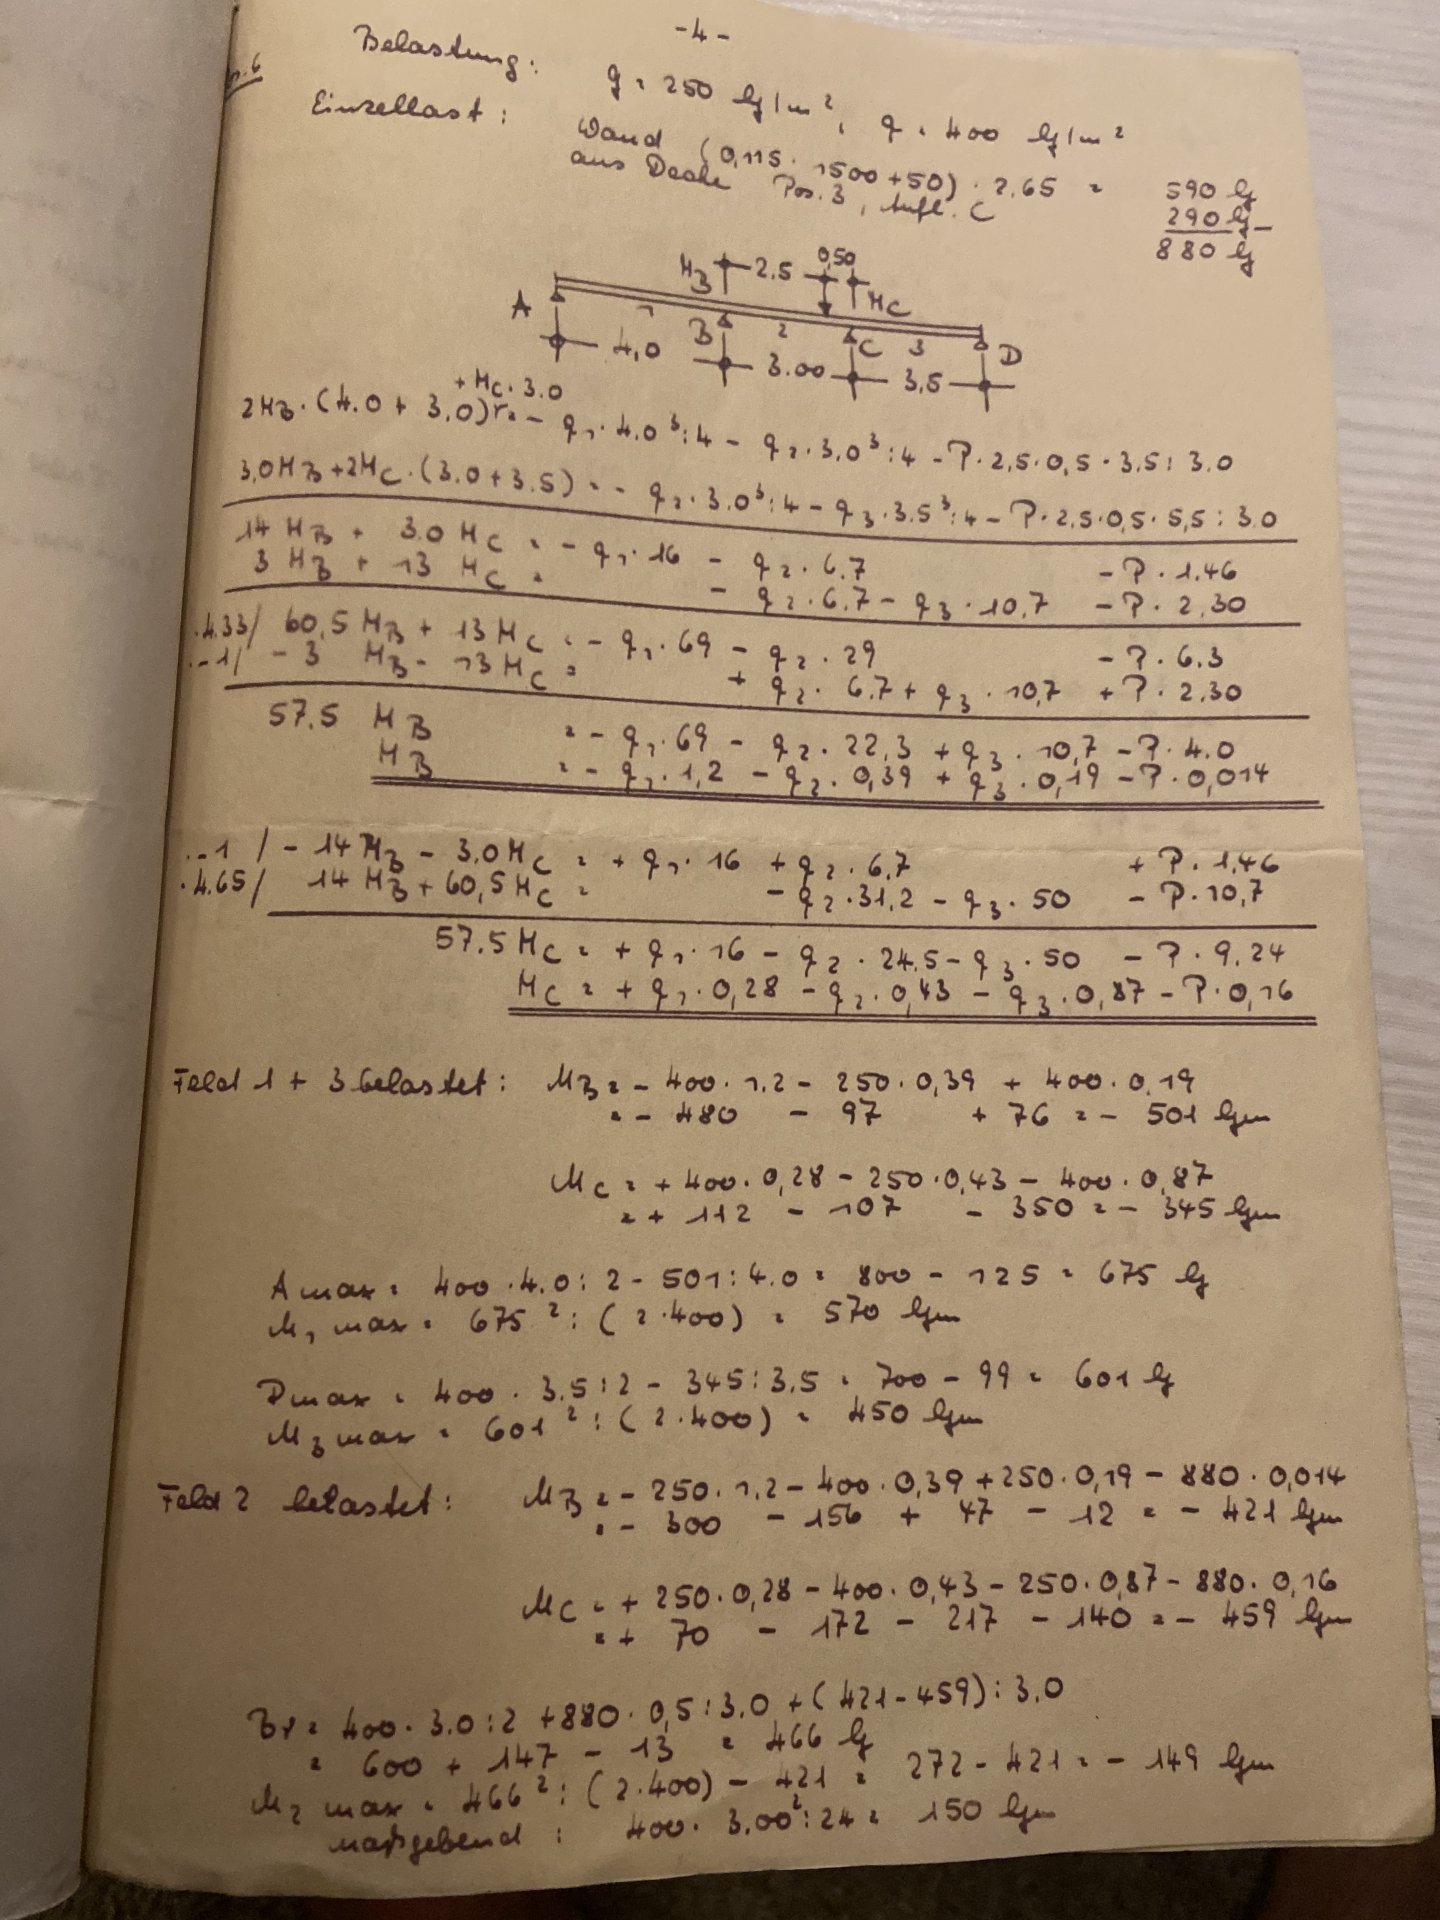 -4-
Belastung: g = 250 kg/m², q = 400 kg/m²
Einzellast: Wand (0,115 · 1500 + 50) · 2.65 = 590 kg
aus Decke Pos. 3, Aufl. C 290 kg
880 kg
MB 2.5 0,50 MC
A 1 B 2 C 3 D
4,0 3.00 3,5
+ MC · 3.0
2MB · (4.0 + 3.0) = - q1 · 4.0³ : 4 - q2 · 3.0³ : 4 - P · 2,5 · 0,5 · 3.5 : 3.0
3,0MB + 2MC · (3.0 + 3.5) = - q2 · 3.0³ : 4 - q3 · 3.5³ : 4 - P · 2,5 · 0,5 · 5,5 : 3.0
14 MB + 3.0 MC = - q1 · 16 - q2 · 6.7 - P · 1.46
3 MB + 13 MC = - q2 · 6.7 - q3 · 10,7 - P · 2,30
·4.33/ 60,5 MB + 13 MC = - q1 · 69 - q2 · 29 - P · 6.3
·-1/ - 3 MB - 13 MC = + q2 · 6.7 + q3 · 10,7 + P · 2.30
57.5 MB = - q1 · 69 - q2 · 22,3 + q3 · 10,7 - P · 4.0
MB = - q1 · 1,2 - q2 · 0,39 + q3 · 0,19 - P · 0,014
·-1 / - 14 MB - 3.0 MC = + q1 · 16 + q2 · 6,7 + P · 1.46
·4.65/ 14 MB + 60,5 MC = - q2 · 31,2 - q3 · 50 - P · 10,7
57.5 MC = + q1 · 16 - q2 · 24.5 - q3 · 50 - P · 9.24
MC = + q1 · 0,28 - q2 · 0,43 - q3 · 0,87 - P · 0,16
Feld 1 + 3 belastet: MB = - 400 · 1.2 - 250 · 0,39 + 400 · 0,19
= - 480 - 97 + 76 = - 501 kgm
MC = + 400 · 0,28 - 250 · 0,43 - 400 · 0,87
= + 112 - 107 - 350 = - 345 kgm
A max = 400 · 4.0 : 2 - 501 : 4.0 = 800 - 125 = 675 kg
M1 max = 675² : (2 · 400) = 570 kgm
D max = 400 · 3.5 : 2 - 345 : 3,5 = 700 - 99 = 601 kg
M3 max = 601² : (2 · 400) = 450 kgm
Feld 2 belastet: MB = - 250 · 1.2 - 400 · 0,39 + 250 · 0,19 - 880 · 0,014
= - 300 - 156 + 47 - 12 = - 421 kgm
MC = + 250 · 0,28 - 400 · 0,43 - 250 · 0,87 - 880 · 0,16
= + 70 - 172 - 217 - 140 = - 459 kgm
Br = 400 · 3.0 : 2 + 880 · 0,5 : 3.0 + (421 - 459) : 3.0
= 600 + 147 - 13 = 466 kg
M2 max = 466² : (2 · 400) - 421 = 272 - 421 = - 149 kgm
maßgebend : 400 · 3.00² : 24 = 150 kgm